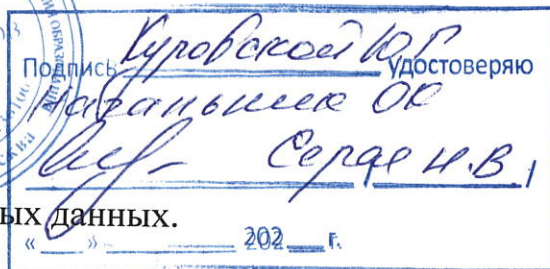 Подпись Куровской Ю.Г. удостоверяю
Начальник ОК
Серде Н.В.
ых данных.
« » 202 г.